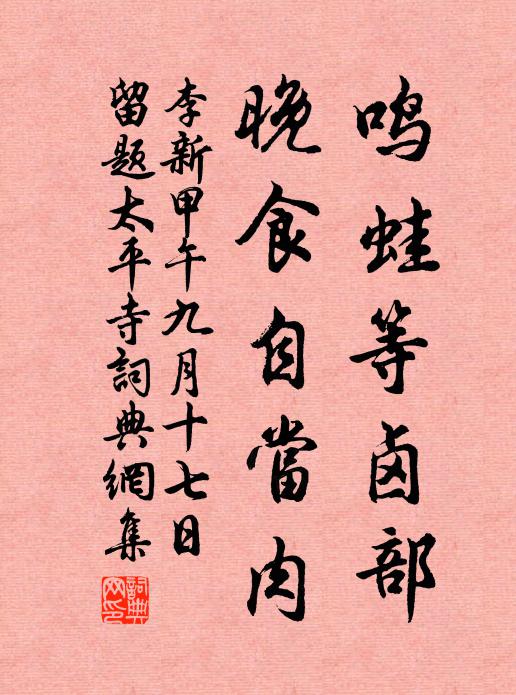 鸣蛙等卤部
晚食自當肉
李新甲午九月十七日
留题太平寺詞典網集
詞典网印